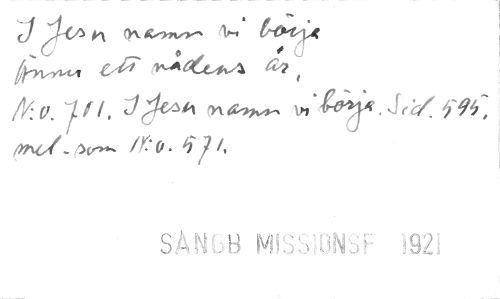 I Jesu namn vi börja
Ännu ett nådens år,
N:o. 701. I Jesu namn vi börja. Sid. 595.
mel. som N:o. 571.
SÅNGB MISSIONSF 1921